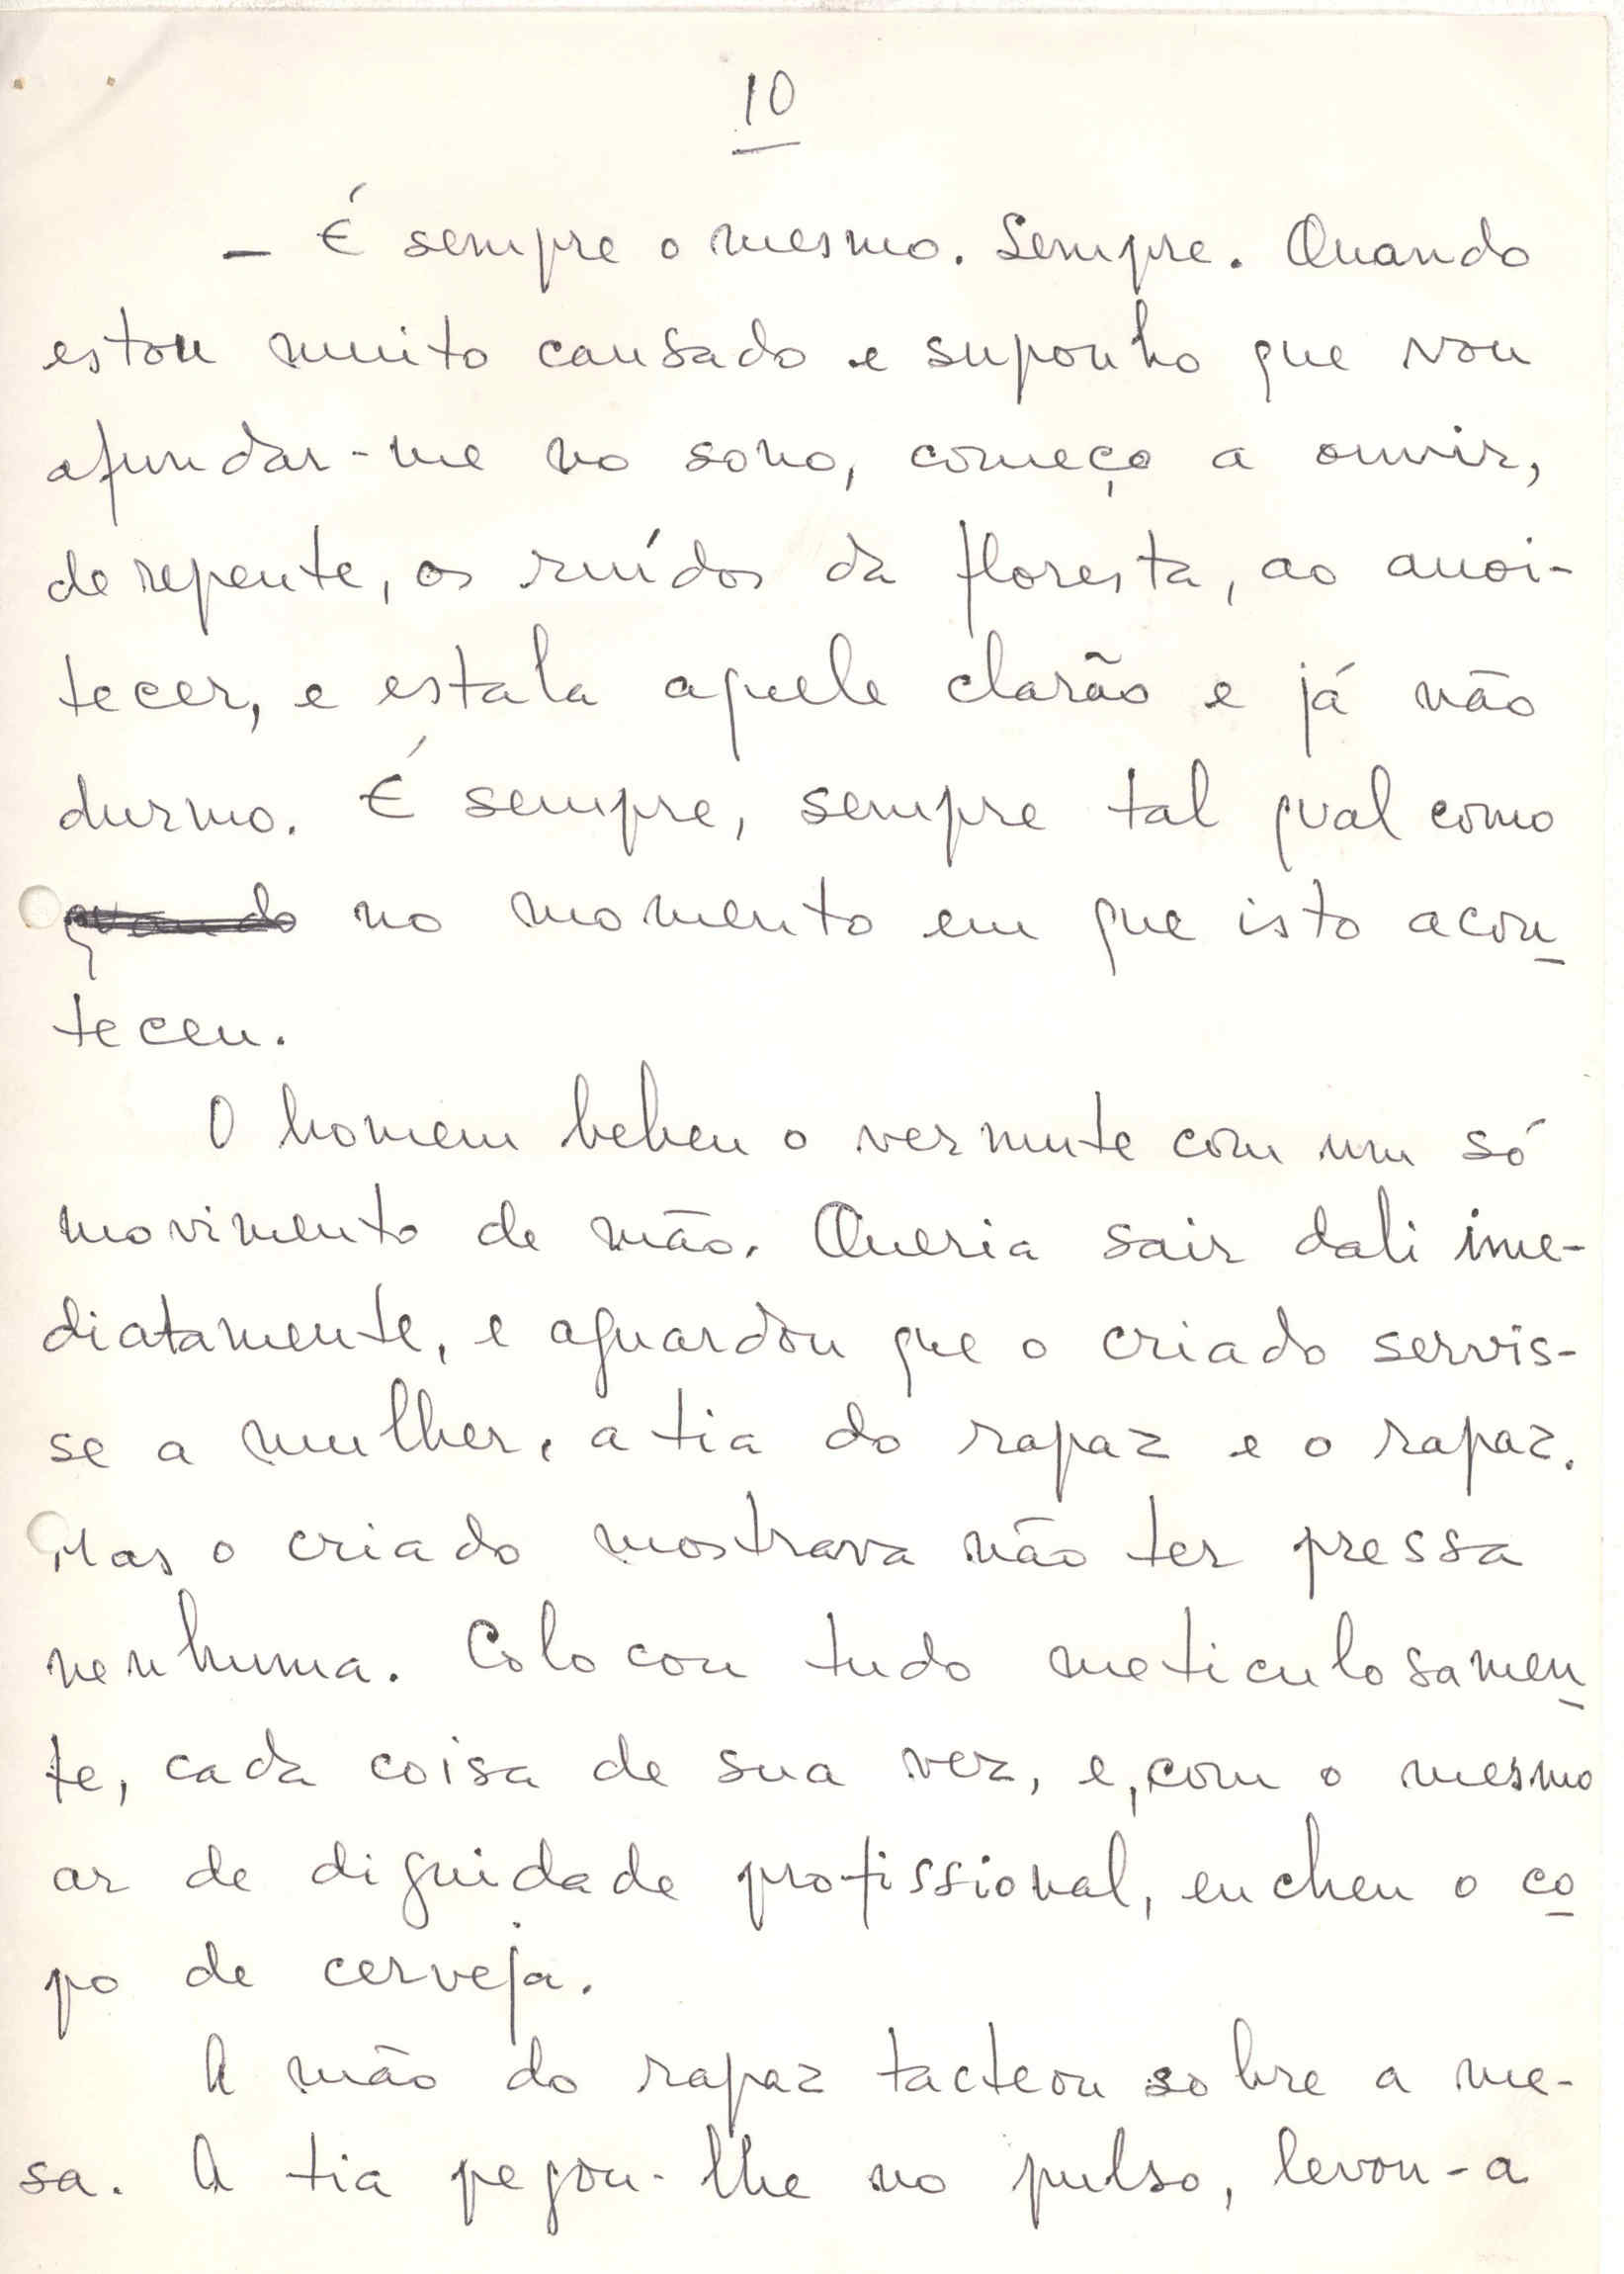 10
– É sempre o mesmo. Sempre. Quando
estou muito cansado e suponho que vou
afundar-me no sono, começo a ouvir,
de repente, os ruídos da floresta, ao anoi-
tecer, e estala aquele clarão e já não
durmo. É sempre, sempre tal qual como
quando no momento em que isto acon-
teceu.
O homem bebeu o vermute com um só
movimento de mão. Queria sair dali ime-
diatamente, e aguardou que o criado servis-
se a mulher, a tia do rapaz e o rapaz.
Mas o criado mostrava não ter pressa
nenhuma. Colocou tudo meticulosamen-
te, cada coisa de sua vez, e, com o mesmo
ar de dignidade profissional, encheu o co-
po de cerveja.
A mão do rapaz tacteou sobre a me-
sa. A tia pegou-lhe no pulso, levou-a